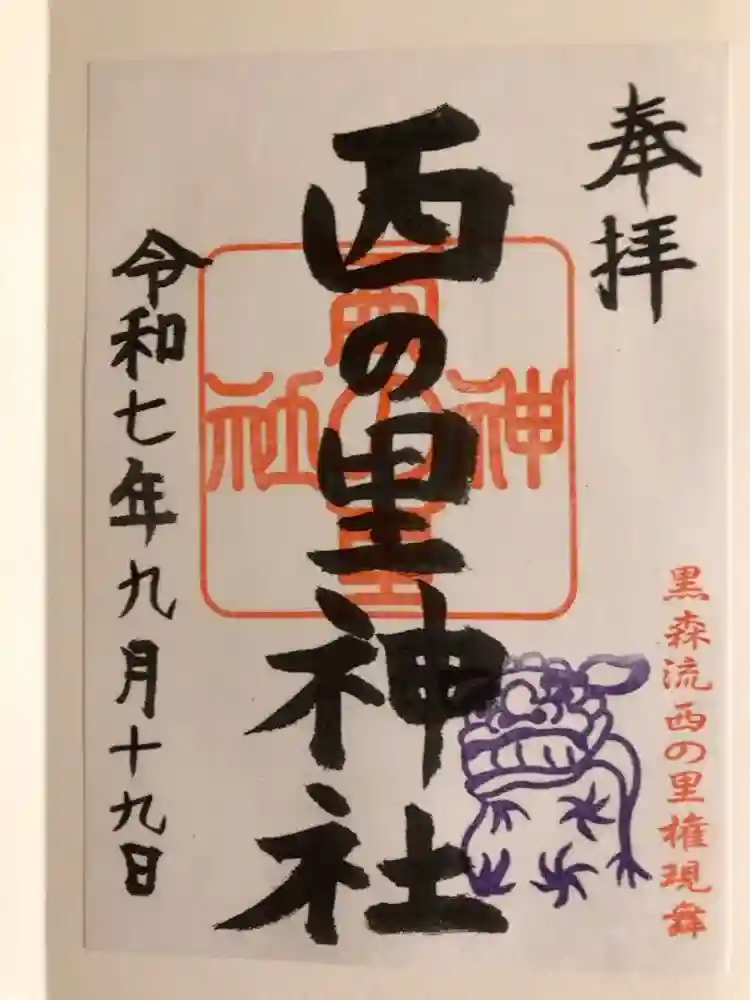 奉拝
黒森流西の里権現舞
西の里神社
西の里神社
令和七年九月十九日